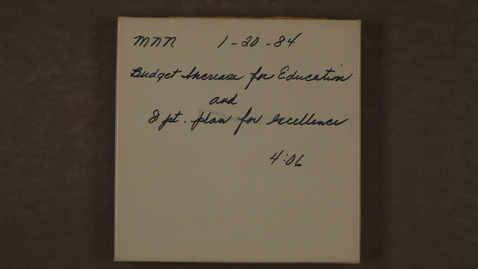 MNN 1-20-84
Budget Increase for Education
and
8 pt. plan for excellence
4:06